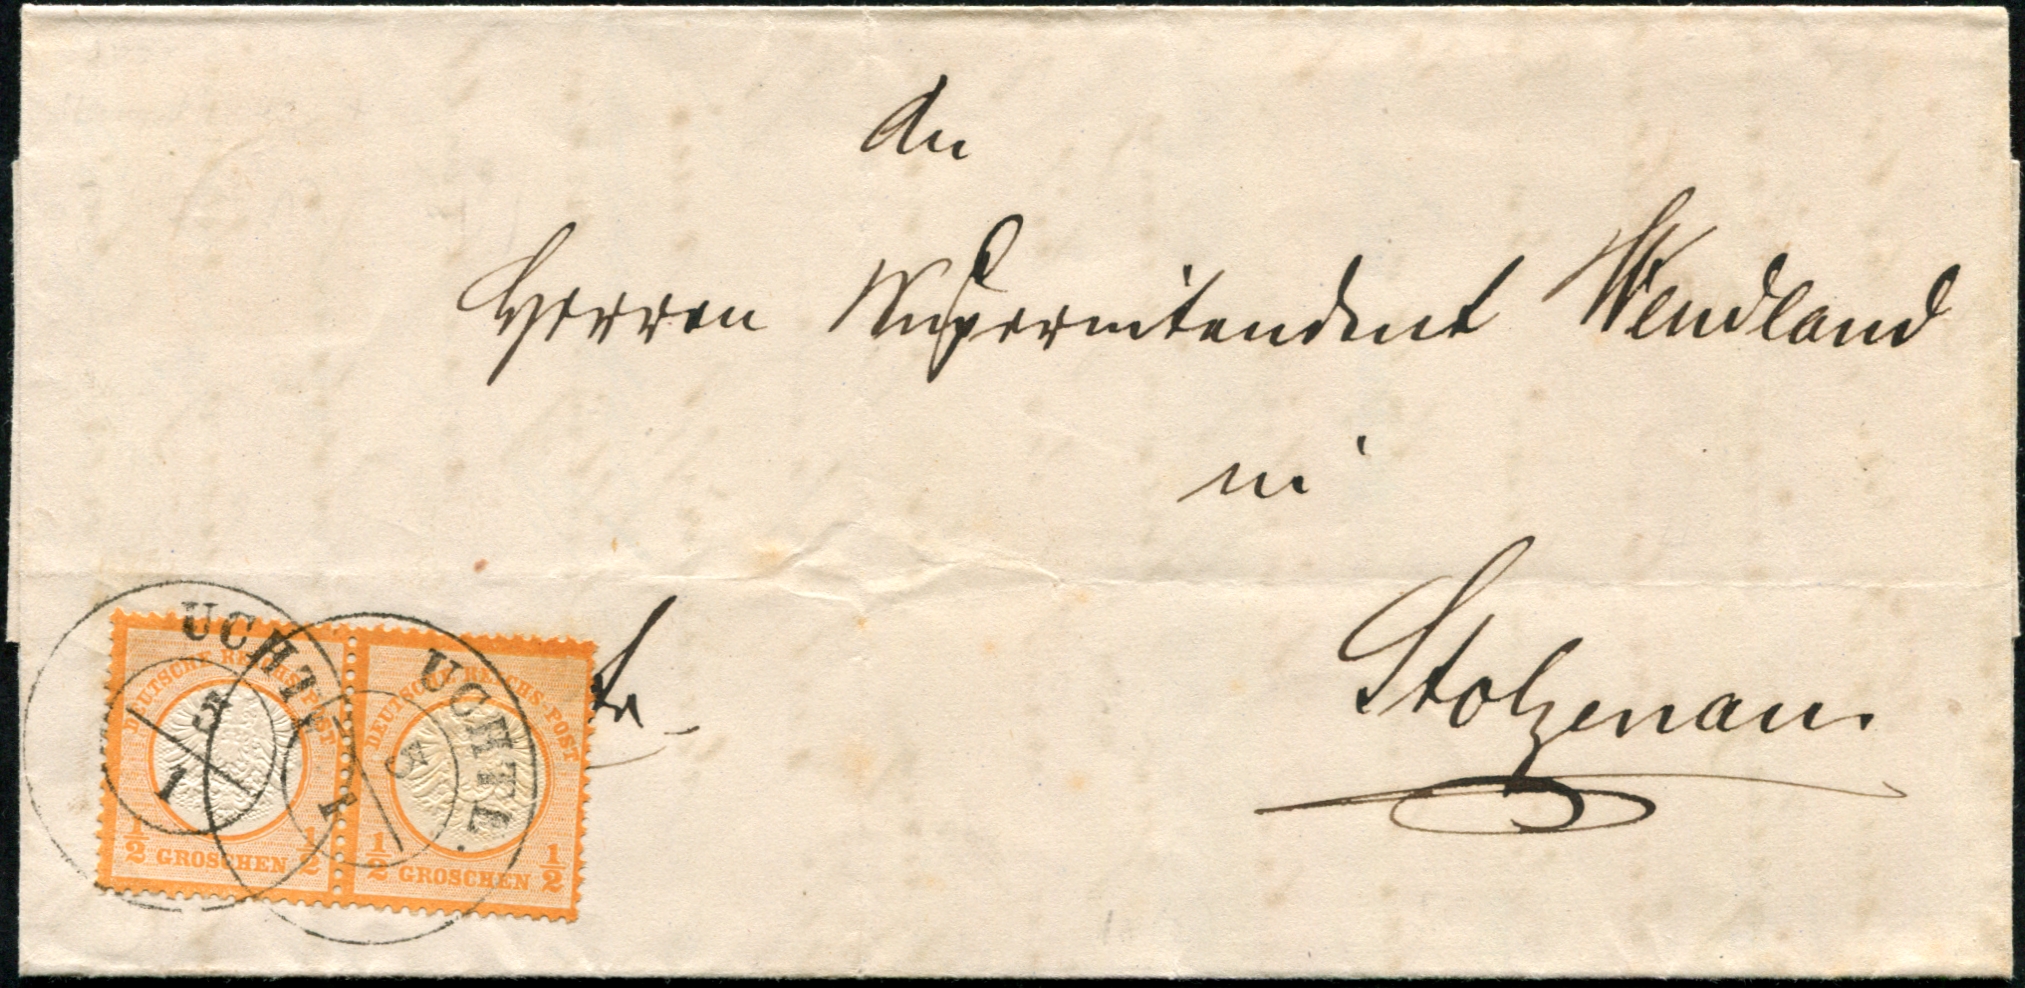 An
Herrn Superintendent Wendland
in
Stolzenau.
fr
UCHTE.
5
1
UCHTE.
5
1
DEUTSCHE REICHS-POST
1/2 GROSCHEN 1/2
DEUTSCHE REICHS-POST
1/2 GROSCHEN 1/2